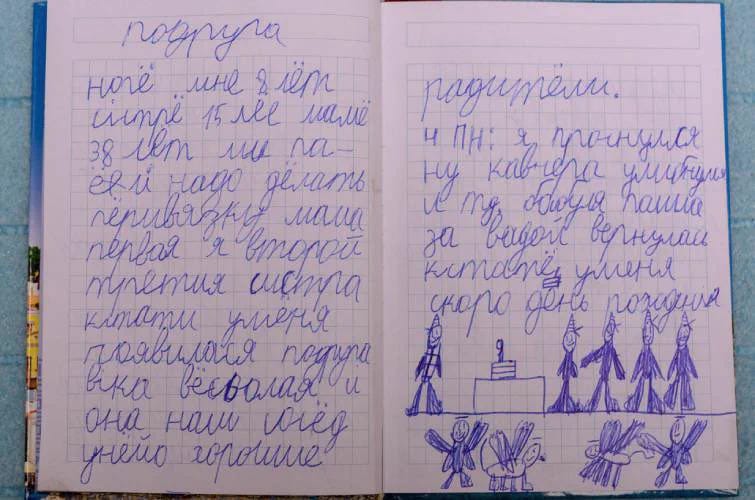 подруга
ногё мне 8 лёт
систрё 15 лес мамё
38 лет ми па-
ей надо дёлать
пёривязку мама
первая я второй
третия систра
кстати умёня
появилася подруга
вика вёсьолая и
она наш согёд
унёйо хорошие
радитёли.
Ч ПН: я проснулся
ну как вчера умубнулся
за вадой вернулась
кстате уменя
скоро день рождения
9